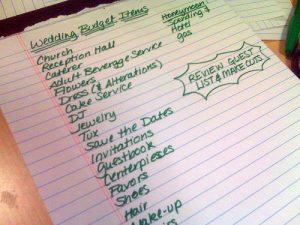 Wedding Budget Items
Church
Reception Hall
Caterer
Adult Beverage Service
Flowers
Dress (& Alterations)
Cake Service
DJ
Jewelry
Tux
Save the Dates
Invitations
Guestbook
Centerpieses
Favors
Shoes
Hair
Make-up
Honeymoon
Spending $
Hotel
gas
REVIEW GUEST
LIST & MAKE CUTS